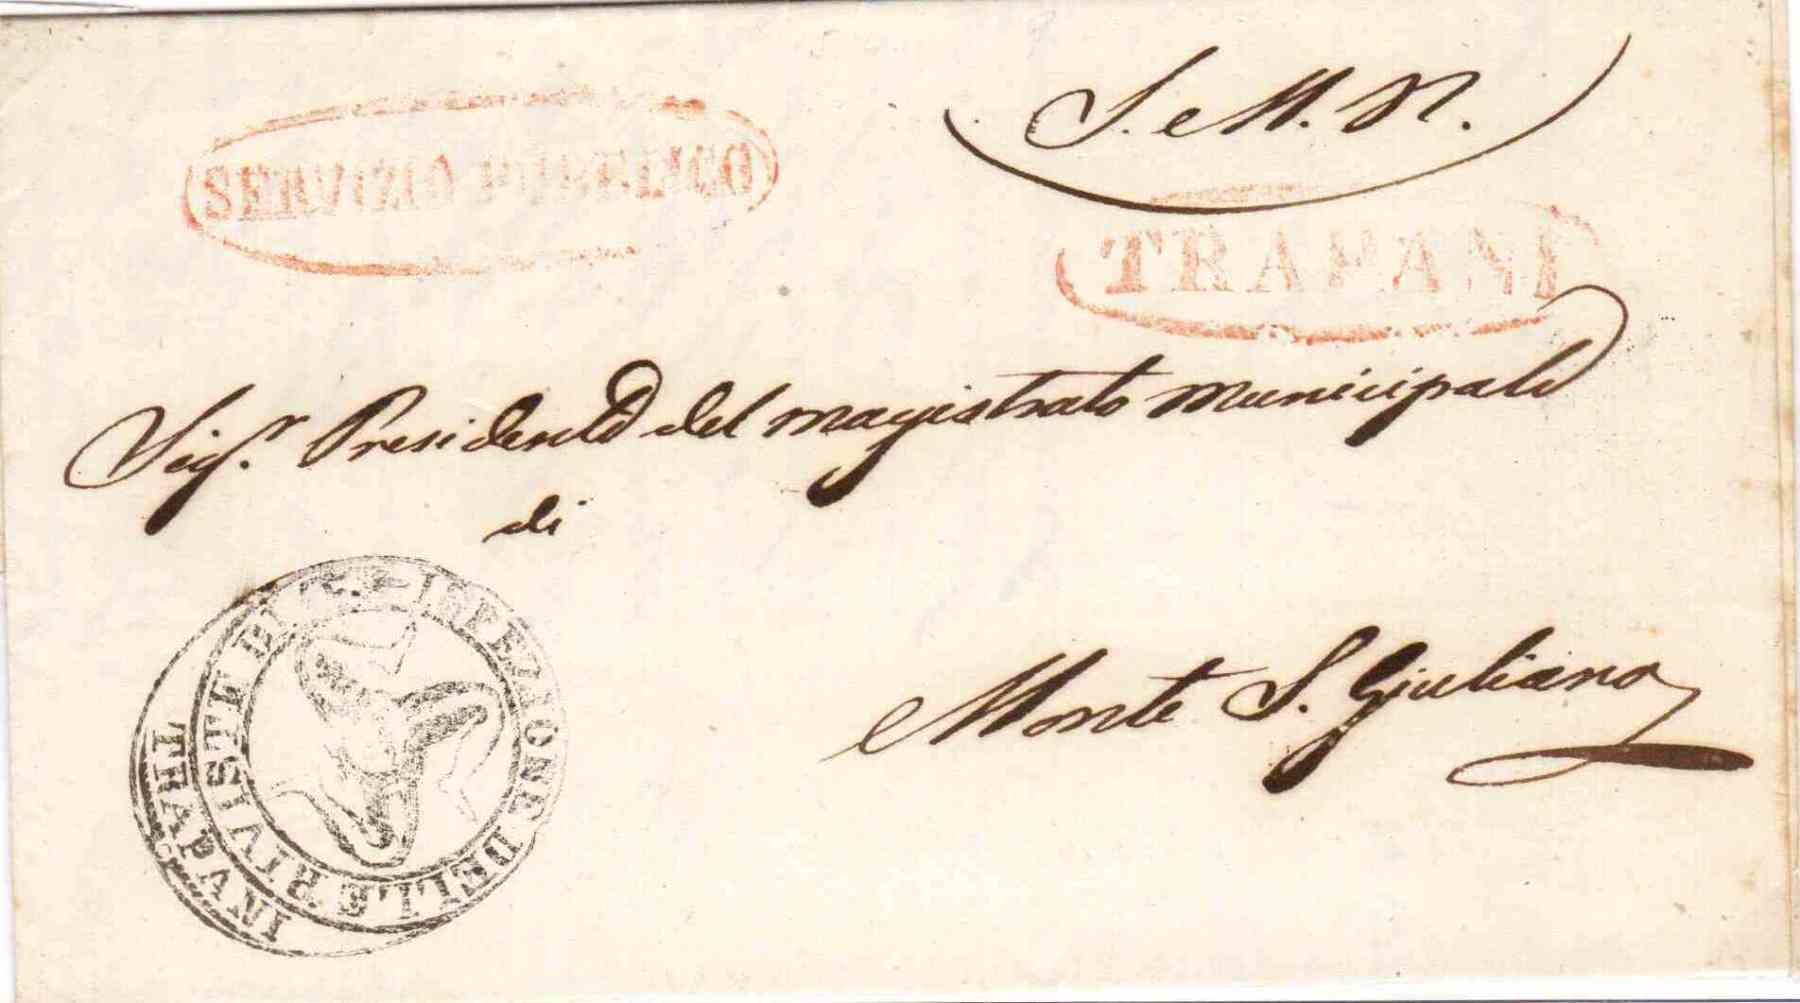 S. e M. N.
SERVIZIO PUBBLICO
TRAPANI
Sig.r Presidente del magistrato Municipale
di
Monte S. Giuliano
ISPEZIONE DELLE RIVISTE DI
TRAPANI